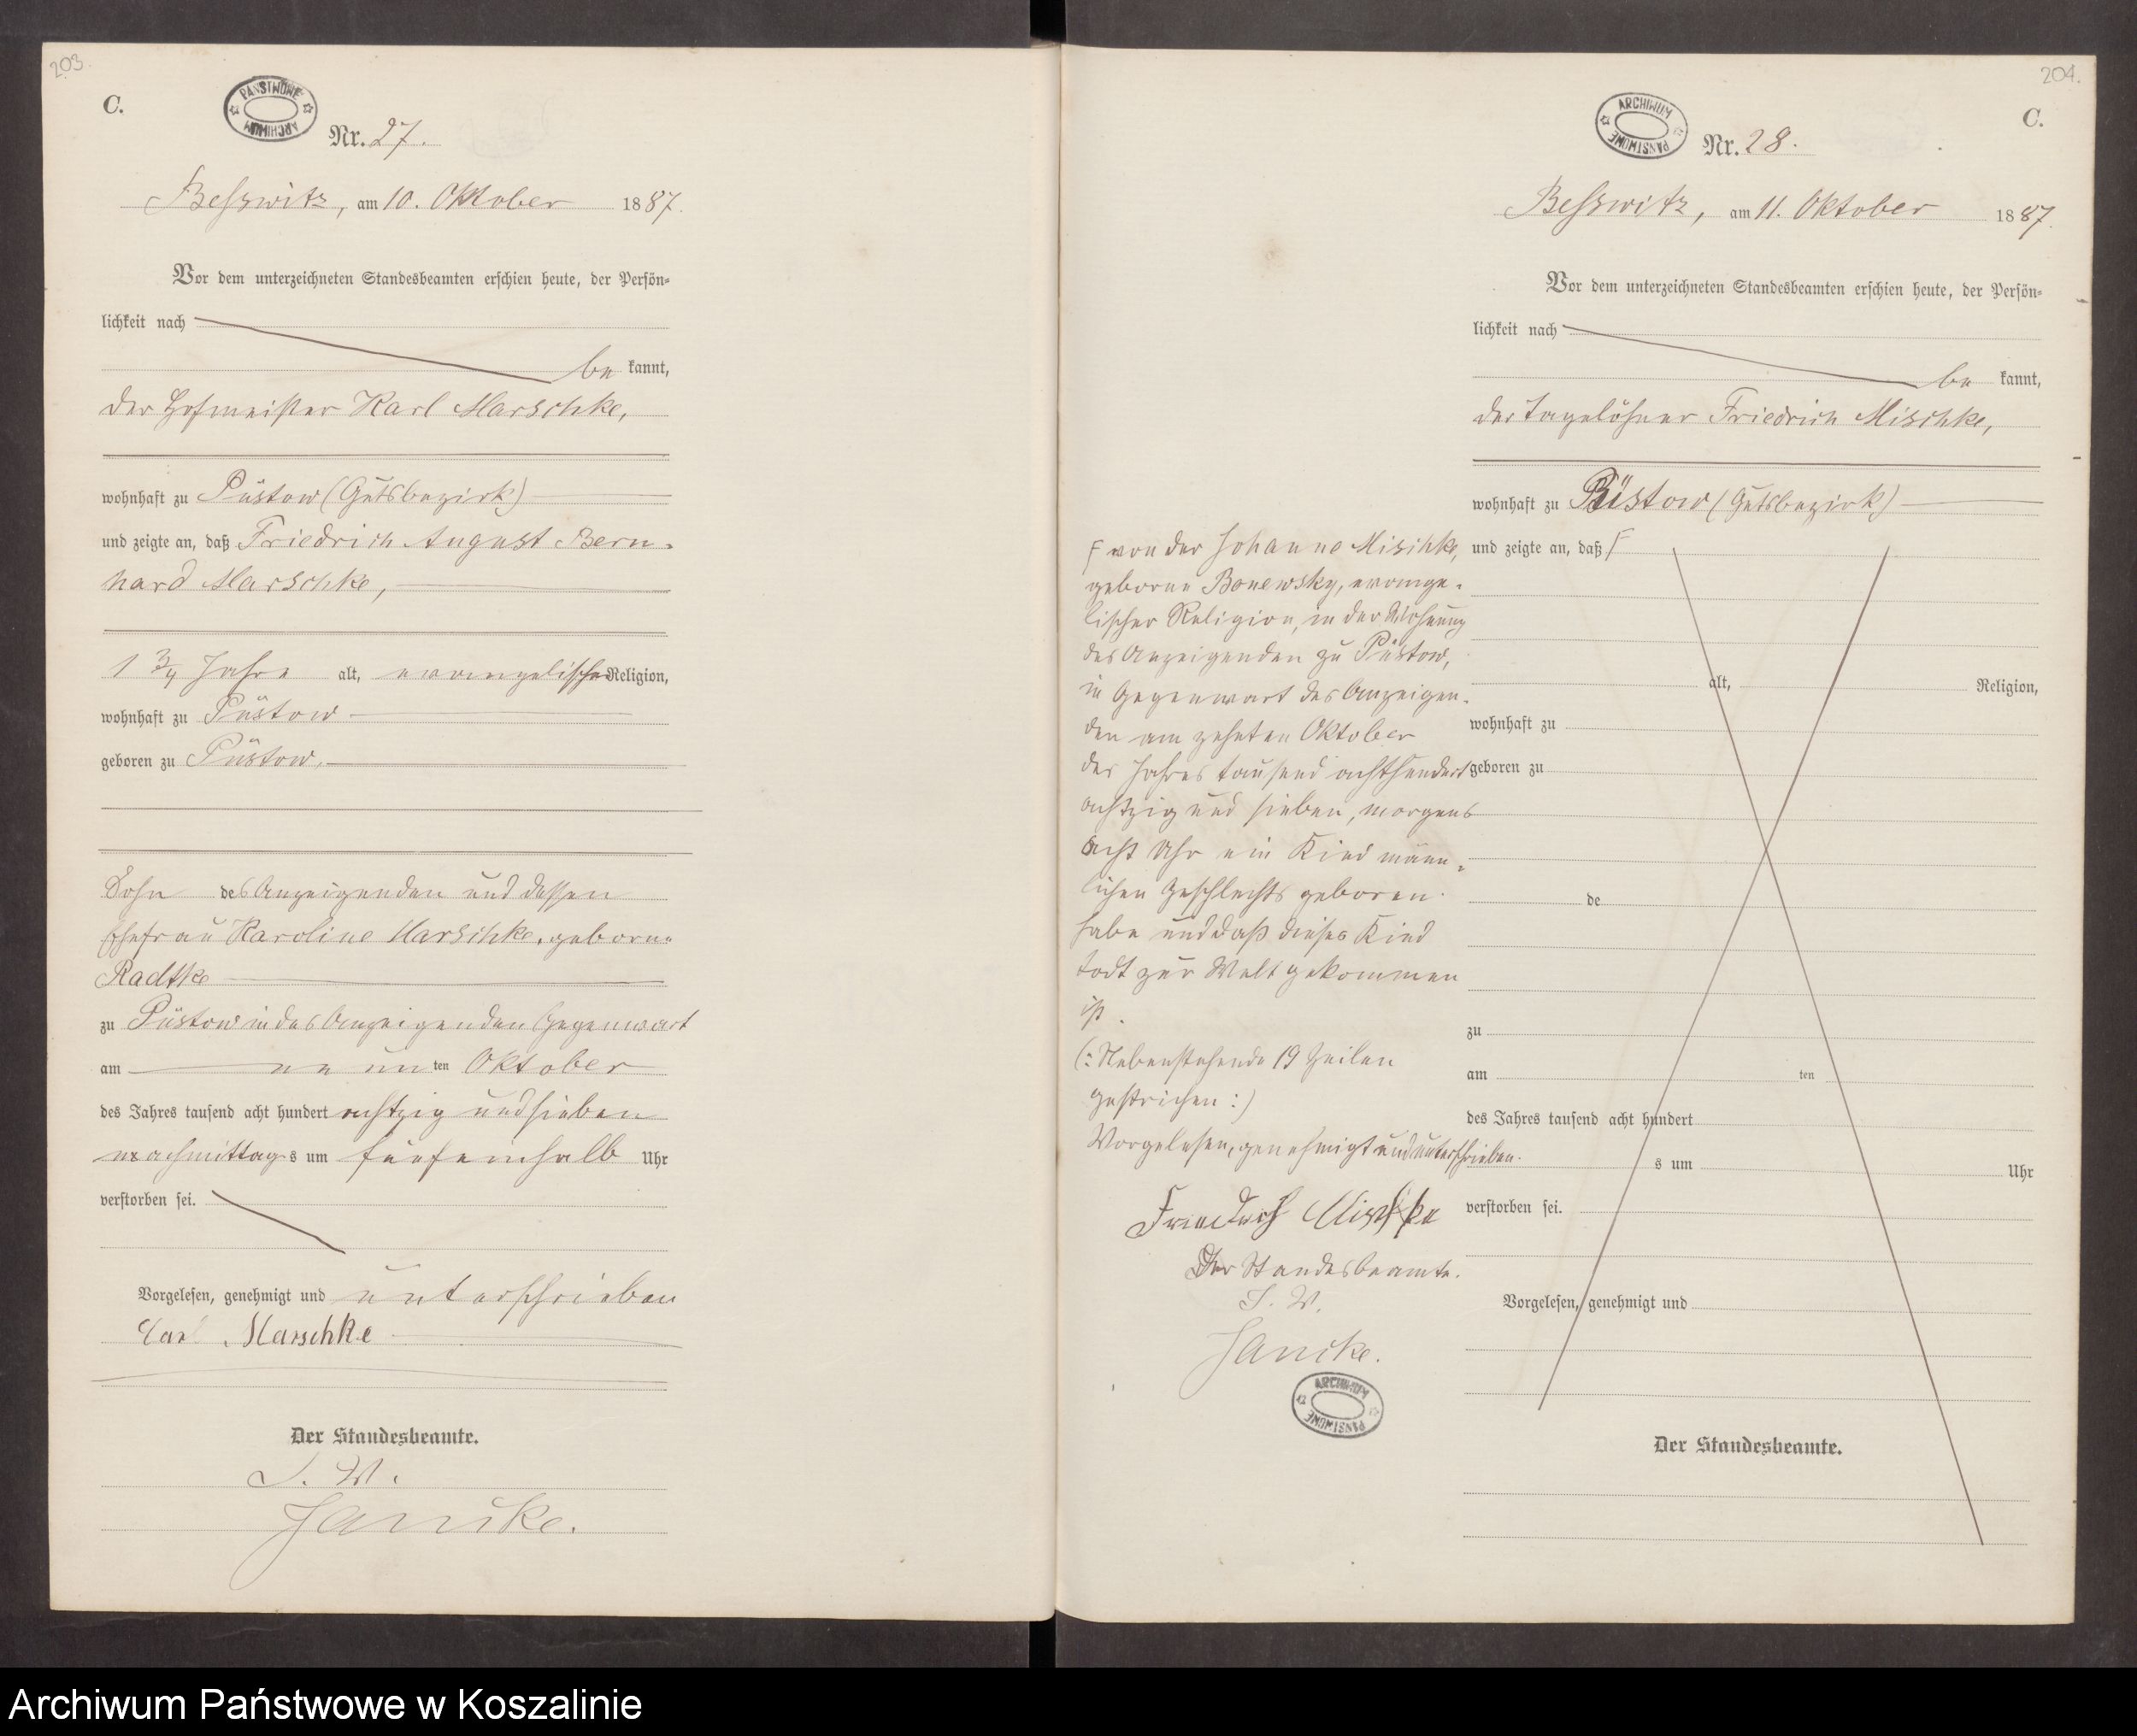 203.
C.
PAŃSTWOWE ARCHIWUM
Nr. 27.
Besswitz, am 10. Oktober 1887.
Vor dem unterzeichneten Standesbeamten erschien heute, der Persön=
lichkeit nach
be kannt,
der Hofmeister Karl Marschke,
wohnhaft zu Püstow (Gutsbezirk)
und zeigte an, daß Friedrich August Bern=
hard Marschke,
1 3/4 Jahre alt, evangelischer Religion,
wohnhaft zu Püstow
geboren zu Püstow,
Sohn des Anzeigenden und dessen
Ehefrau Karoline Marschke, geborne
Radtke
zu Püstow in des Anzeigenden Gegenwart
am neunten Oktober
des Jahres tausend acht hundert achtzig und sieben
nachmittags um fünfeinhalb Uhr
verstorben sei.
Vorgelesen, genehmigt und unterschrieben
Carl Marschke
Der Standesbeamte.
J. V.
Jancke.
204.
C.
ARCHIWUM PAŃSTWOWE
Nr. 28.
Besswitz, am 11. Oktober 1887.
Vor dem unterzeichneten Standesbeamten erschien heute, der Persön=
lichkeit nach
be kannt,
der Tagelöhner Friedrich Mischke,
wohnhaft zu Püstow (Gutsbezirk)
und zeigte an, daß F
alt, Religion,
wohnhaft zu
geboren zu
de
zu
am ten
des Jahres tausend acht hundert
s um Uhr
verstorben sei.
Vorgelesen, genehmigt und
Der Standesbeamte.
F von der Johanne Mischke,
geborne Bonewsky, evange=
lischer Religion, in der Wohnung
des Anzeigenden zu Püstow,
in Gegenwart des Anzeigen=
den am zehnten Oktober
des Jahres tausend achthundert
achtzig und sieben, morgens
acht Uhr ein Kind männ=
lichen Geschlechts geboren
habe und daß dieses Kind
todt zur Welt gekommen
ist.
(: Nebenstehende 19 Zeilen
gestrichen :)
Vorgelesen, genehmigt und unterschrieben.
Friedrich Mischke
Der Standesbeamte.
J. V.
Jancke.
ARCHIWUM PAŃSTWOWE
Archiwum Państwowe w Koszalinie